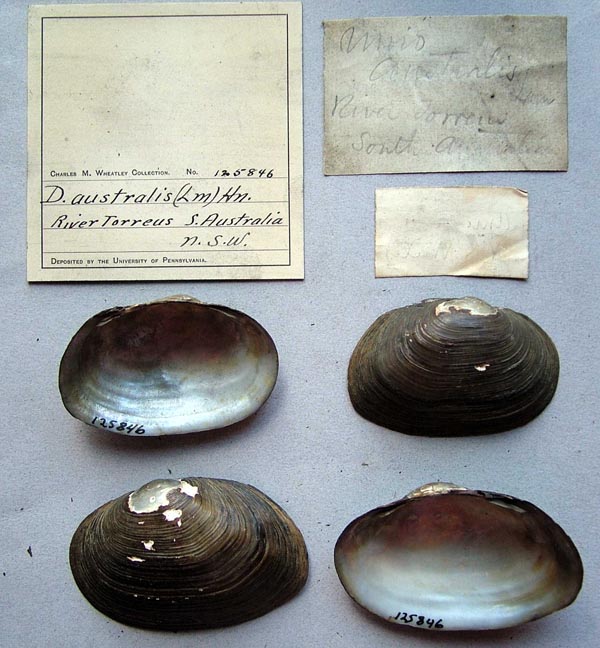 CHARLES M. WHEATLEY COLLECTION. No. 125846
D. australis (Lm) Hn.
River Torreus S. Australia
n. S. W.
DEPOSITED BY THE UNIVERSITY OF PENNSYLVANIA.
Unio
australis
River Torrens
South Australia
125846
125846